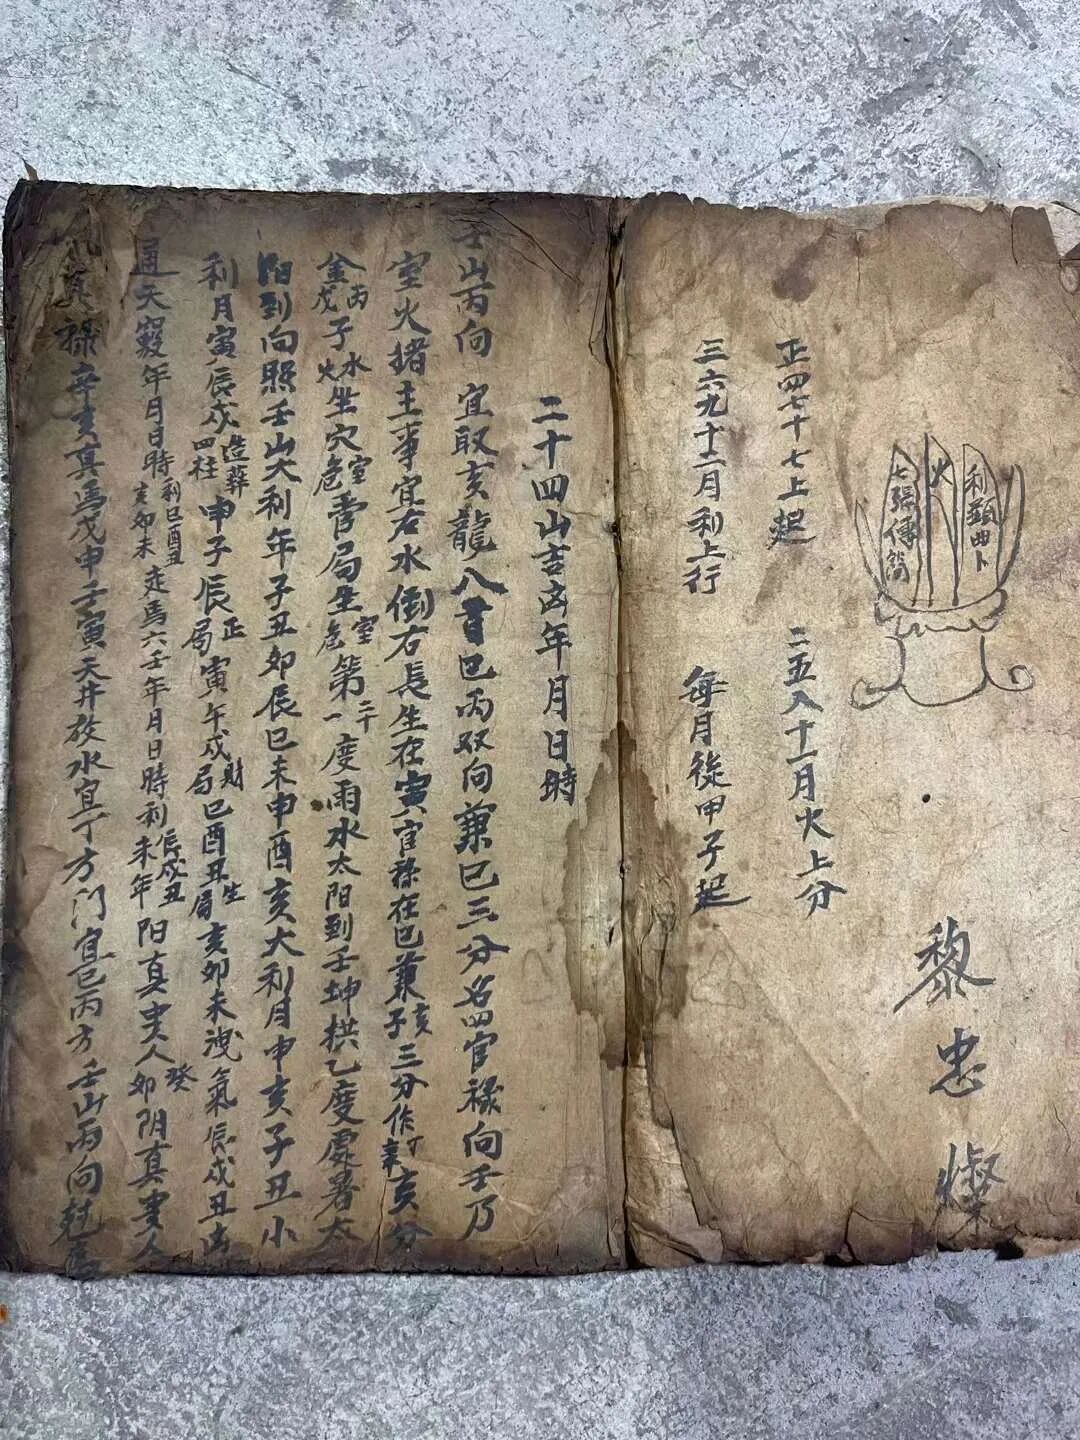 利顕曲卜
火
七張傳筒
黎忠燦
正四七十七上起
二五八十一月火上分
三六九十二月利上行
每月從甲子起
二十四山吉凶年月日時
壬山丙向 宜取亥龍八首巳丙双向兼巳三分名四官祿向壬乃
室火猪主事宜右水倒右長生在寅官祿在巳兼亥子三分作丁辛亥分
金丙戊子水火坐穴室危営局生室危第二十一度雨水太阳到壬坤拱乙度處暑太
阳到向照壬山大利年子丑卯辰巳未申酉亥大利月申亥子丑小
利月寅辰戌造葬四柱申子辰正局寅午戌財局巳酉丑生局亥卯未洩氣辰戌丑凶
通天竅年月日時利巳酉丑亥卯未走馬六壬年月日時利辰戌丑未年阳真贵人癸卯阴真贵人
真禄辛亥真馬戊申壬寅天井放水宜丁方门宜巳丙方壬山丙向